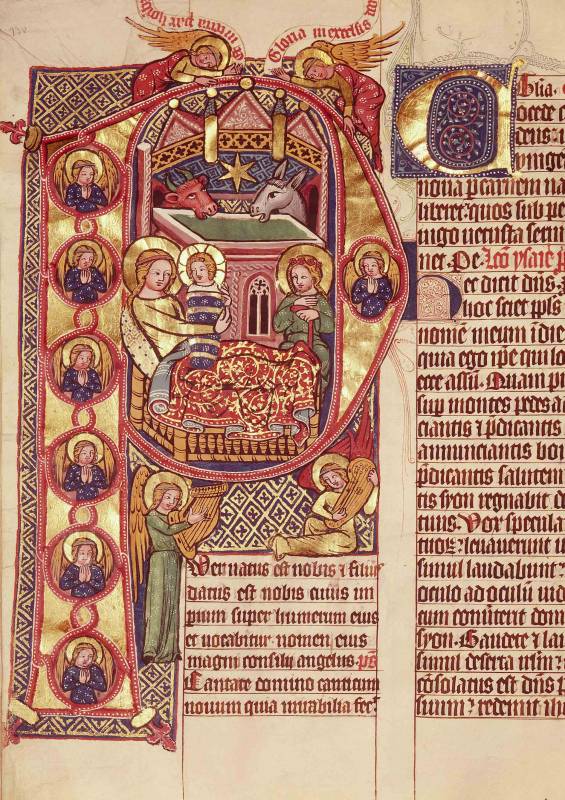 Gloria in excelsis
Uer natus est nobis ⁊ filius
datus est nobis cuius im
pium super humerum eius
et uocabitur nomen eius
magni consilij angelus. ps
Cantate domino canticum
nouum quia mirabilia fec
ocede
dens
uirgine
nona p carnem na
liberet quos sub pe
iugo uetusta serui
net. Per Lco ysaie p
ec dicit dns
nomē meum
quia ego ipe qui lo
ecce assū. Quam pu
sup montes pedes a
ciantis ⁊ p̄dicantis
annunciantis bo
p̄dicantis salutem
tis syon regnabit de
tuus. Uox specula
tuoꝝ leuauerunt u
simul laudabunt
oculo ad oculū uid
cum conūterit dom
syon. Gaudete ⁊ lau
simul deserta
cōsolatus est dn̄s p
suum ⁊ redemit